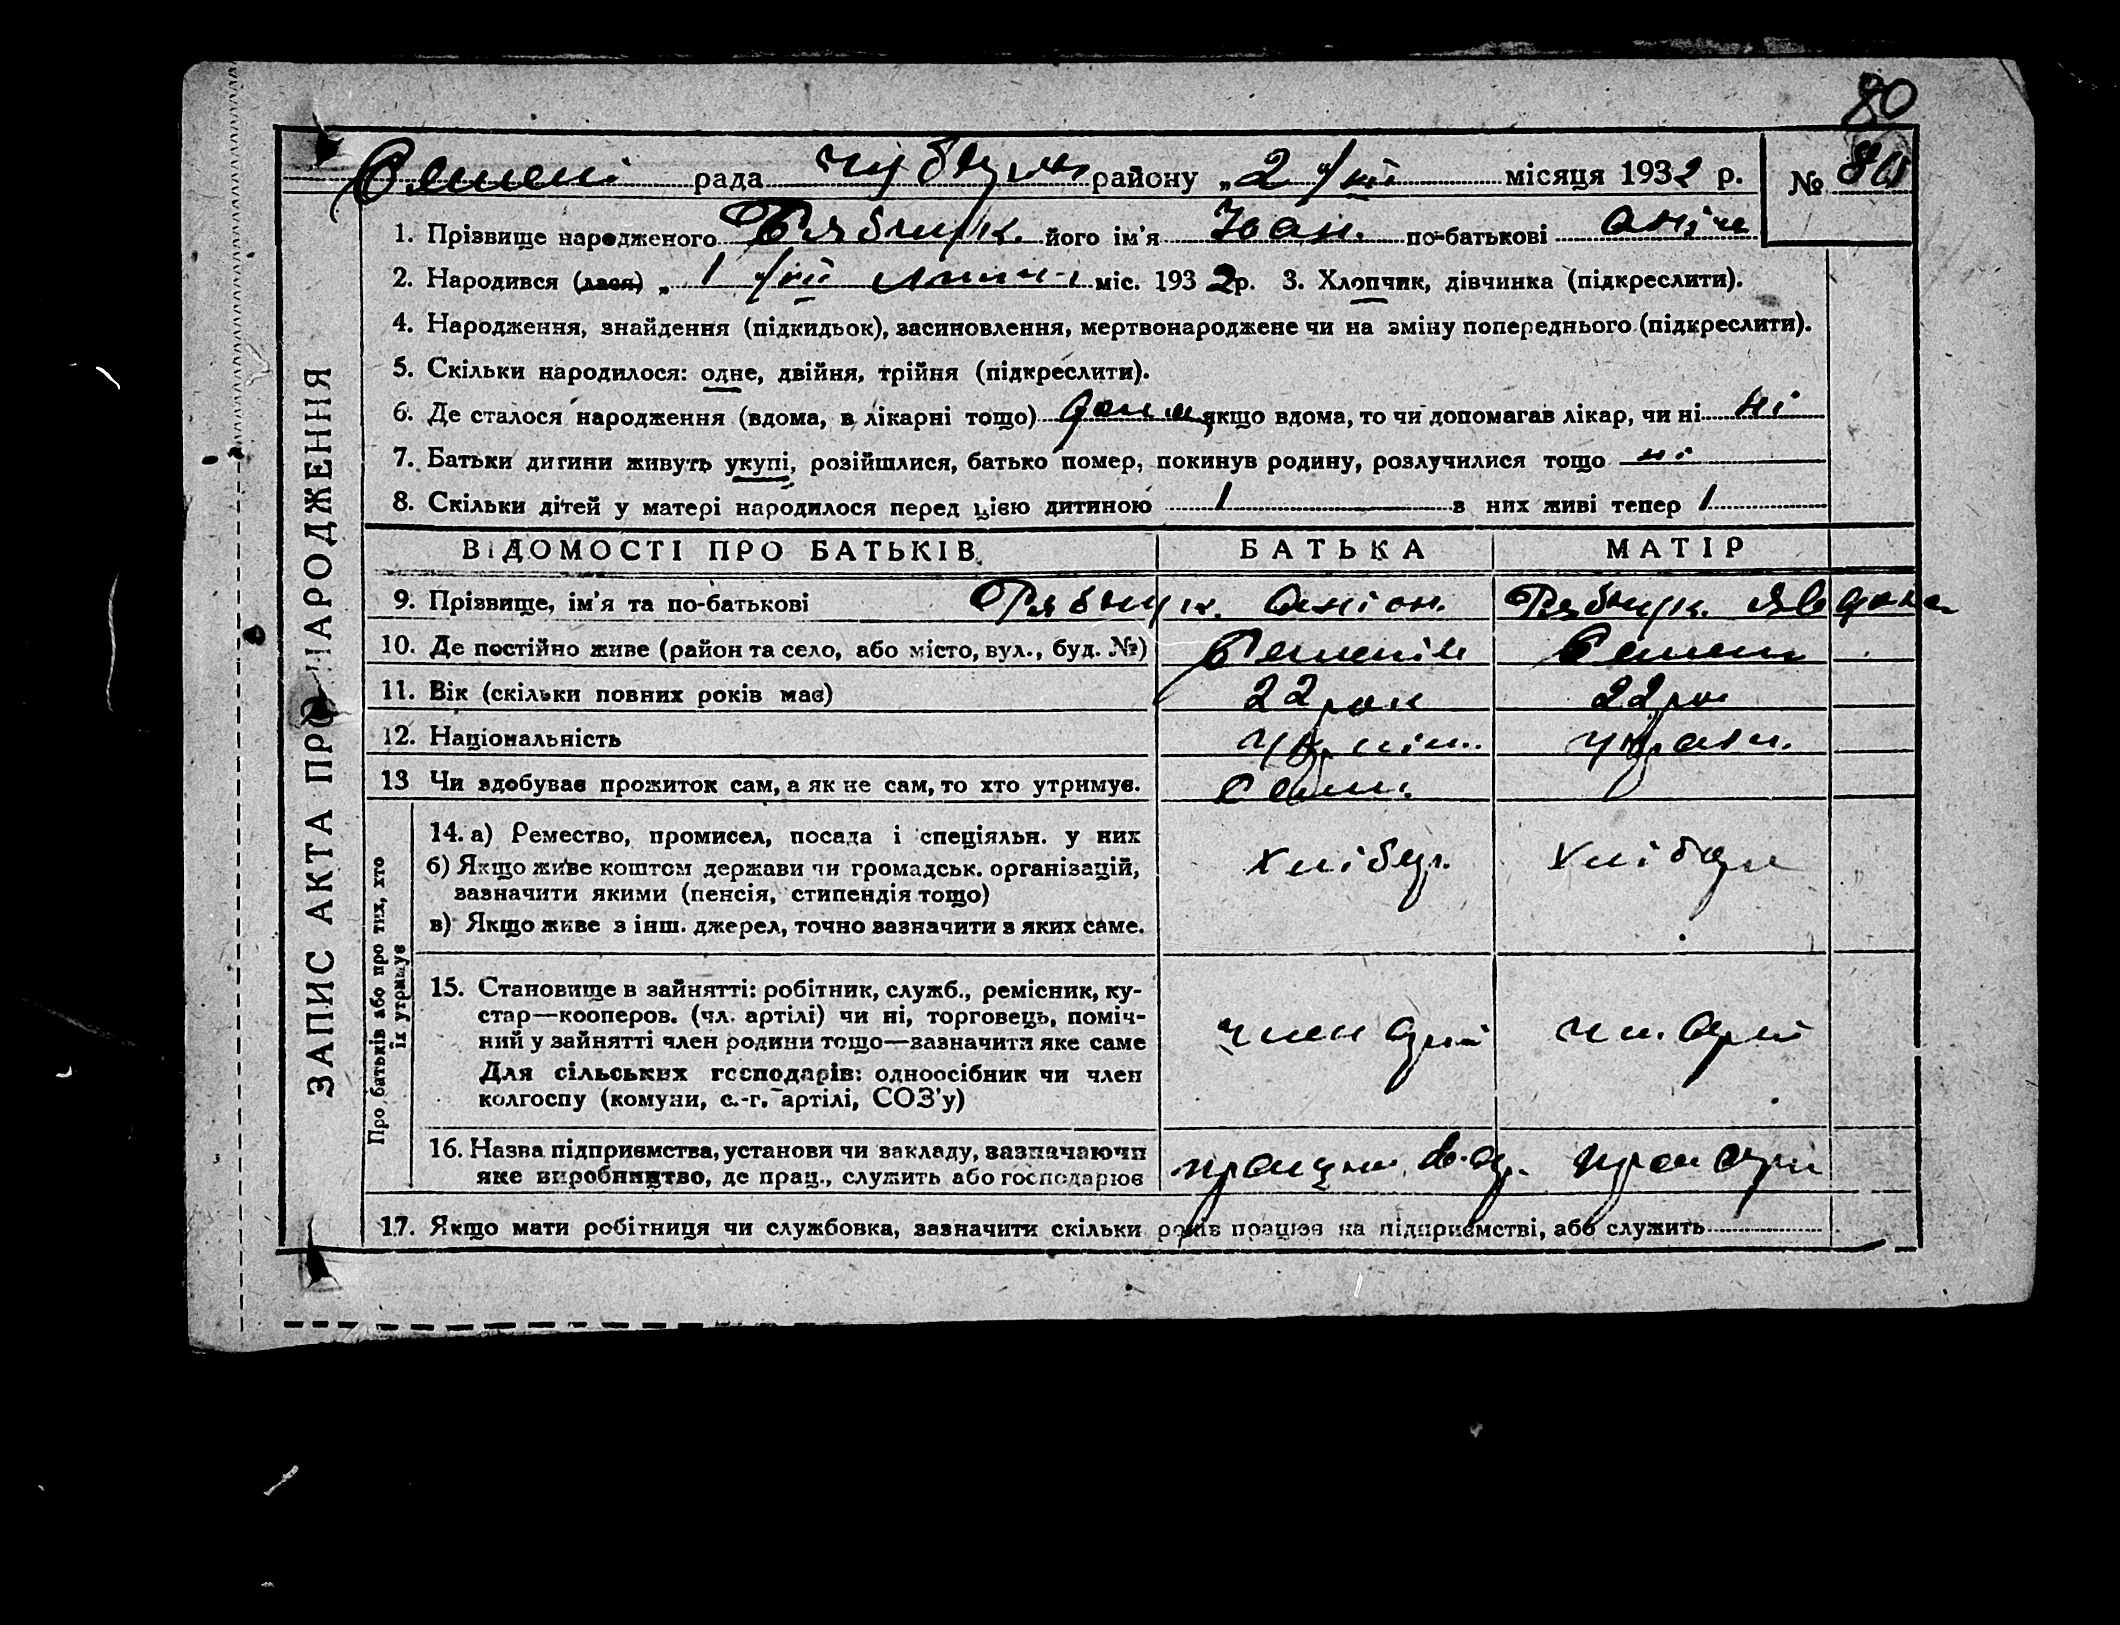 80
рада району „2 місяця 1932 р. № 80
1. Прізвище народженого Рябчук. його ім’я Іван. по-батькові
2. Народився (лася) „ 1 /VII міс. 1932 р. 3. Хлопчик, дівчинка (підкреслити).
4. Народження, знайдення (підкидьок), засиновлення, мертвонароджене чи на зміну попереднього (підкреслити).
5. Скільки народилося: одне, двійня, трійня (підкреслити).
6. Де сталося народження (вдома, в лікарні тощо) дома, якщо вдома, то чи допомагав лікар, чи ні ні
7. Батьки дитини живуть укупі, розійшлися, батько помер, покинув родину, розлучилися тощо ні
8. Скільки дітей у матері народилося перед цією дитиною 1 в них живі тепер 1
ЗАПИС АКТА ПРО НАРОДЖЕННЯ
ВІДОМОСТІ ПРО БАТЬКІВ БАТЬКА МАТІР
9. Прізвище, ім’я та по-батькові Рябчук. Рябчук. Явдоха
10. Де постійно живе (район та село, або місто, вул., буд. №)
11. Вік (скільки повних років має) 22 рок 22 ро
12. Національність україн.
13 Чи здобуває прожиток сам, а як не сам, то хто утримує. Сам.
Про батьків або про тих, хто
їх утримує
14. а) Ремество, промисел, посада і спеціяльн. у них
б) Якщо живе коштом держави чи громадськ. організацій,
зазначити якими (пенсія, стипендія тощо)
хлібор. хлібор
в) Якщо живе з інш. джерел, точно зазначити з яких саме.
15. Становище в зайнятті: робітник, служб., ремісник, ку-
стар—кооперов. (чл. артілі) чи ні, торговець, поміч-
ний у зайнятті член родини тощо—зазначити яке саме
член чл.
Для сільських господарів: одноосібник чи член
колгоспу (комуни, с.-г. артілі, СОЗ’у)
16. Назва підприємства, установи чи закладу, зазначаючи
яке виробництво, де прац., служить або господарює
17. Якщо мати робітниця чи службовка, зазначити скільки років працює на підприємстві, або служить